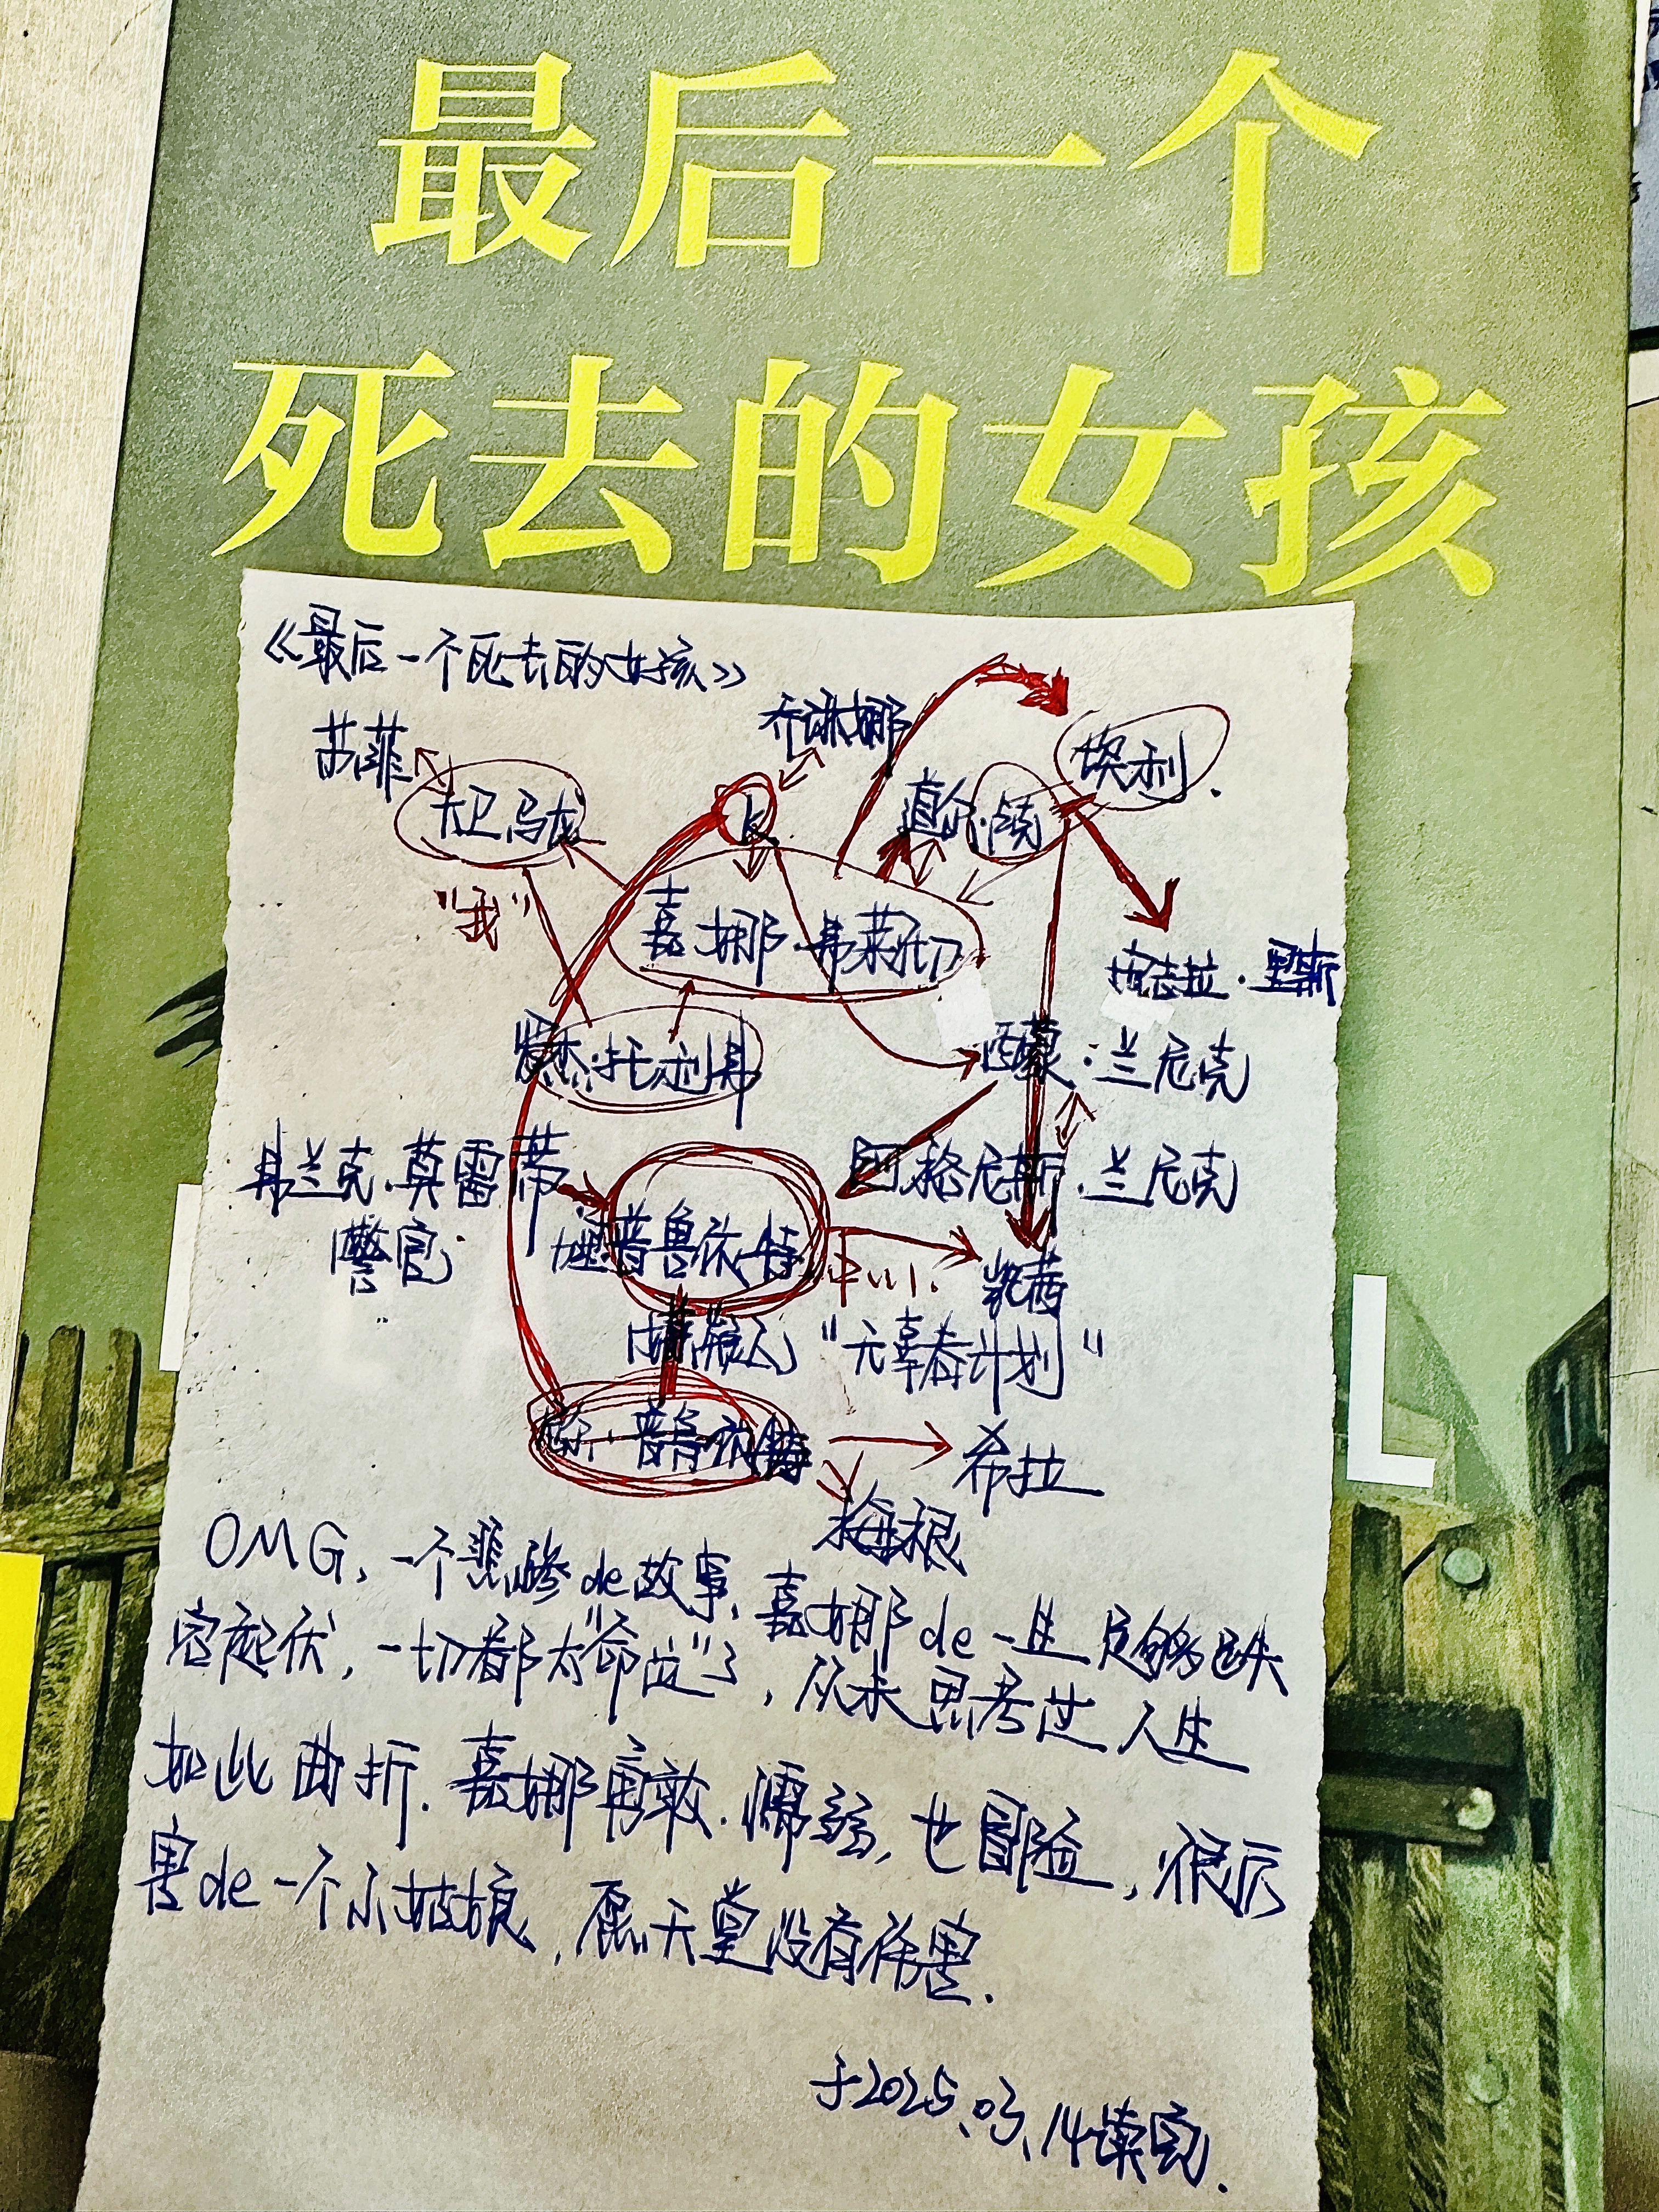 最后一个
死去的女孩
《最后一个死去的女孩》
乔琳娜
苏菲
埃利.
大卫·马龙
K
直尔·庞
"我"
嘉娜·弗莱彻
里斯
杰·托利弗
西蒙·兰尼克
弗兰克·莫雷蒂
阿格尼斯·兰尼克
警官
普鲁伊特
凯茜
"无辜者计划"
普鲁伊特
希拉
梅根
L
OMG,一个悲惨de故事,嘉娜de一生足够跌
宕起伏,一切都太"命运"了,从未思考过人生
如此曲折.嘉娜勇敢.懦弱,也冒险,很厉
害de一个小姑娘,愿天堂没有伤害.
于2025.03.14读完.